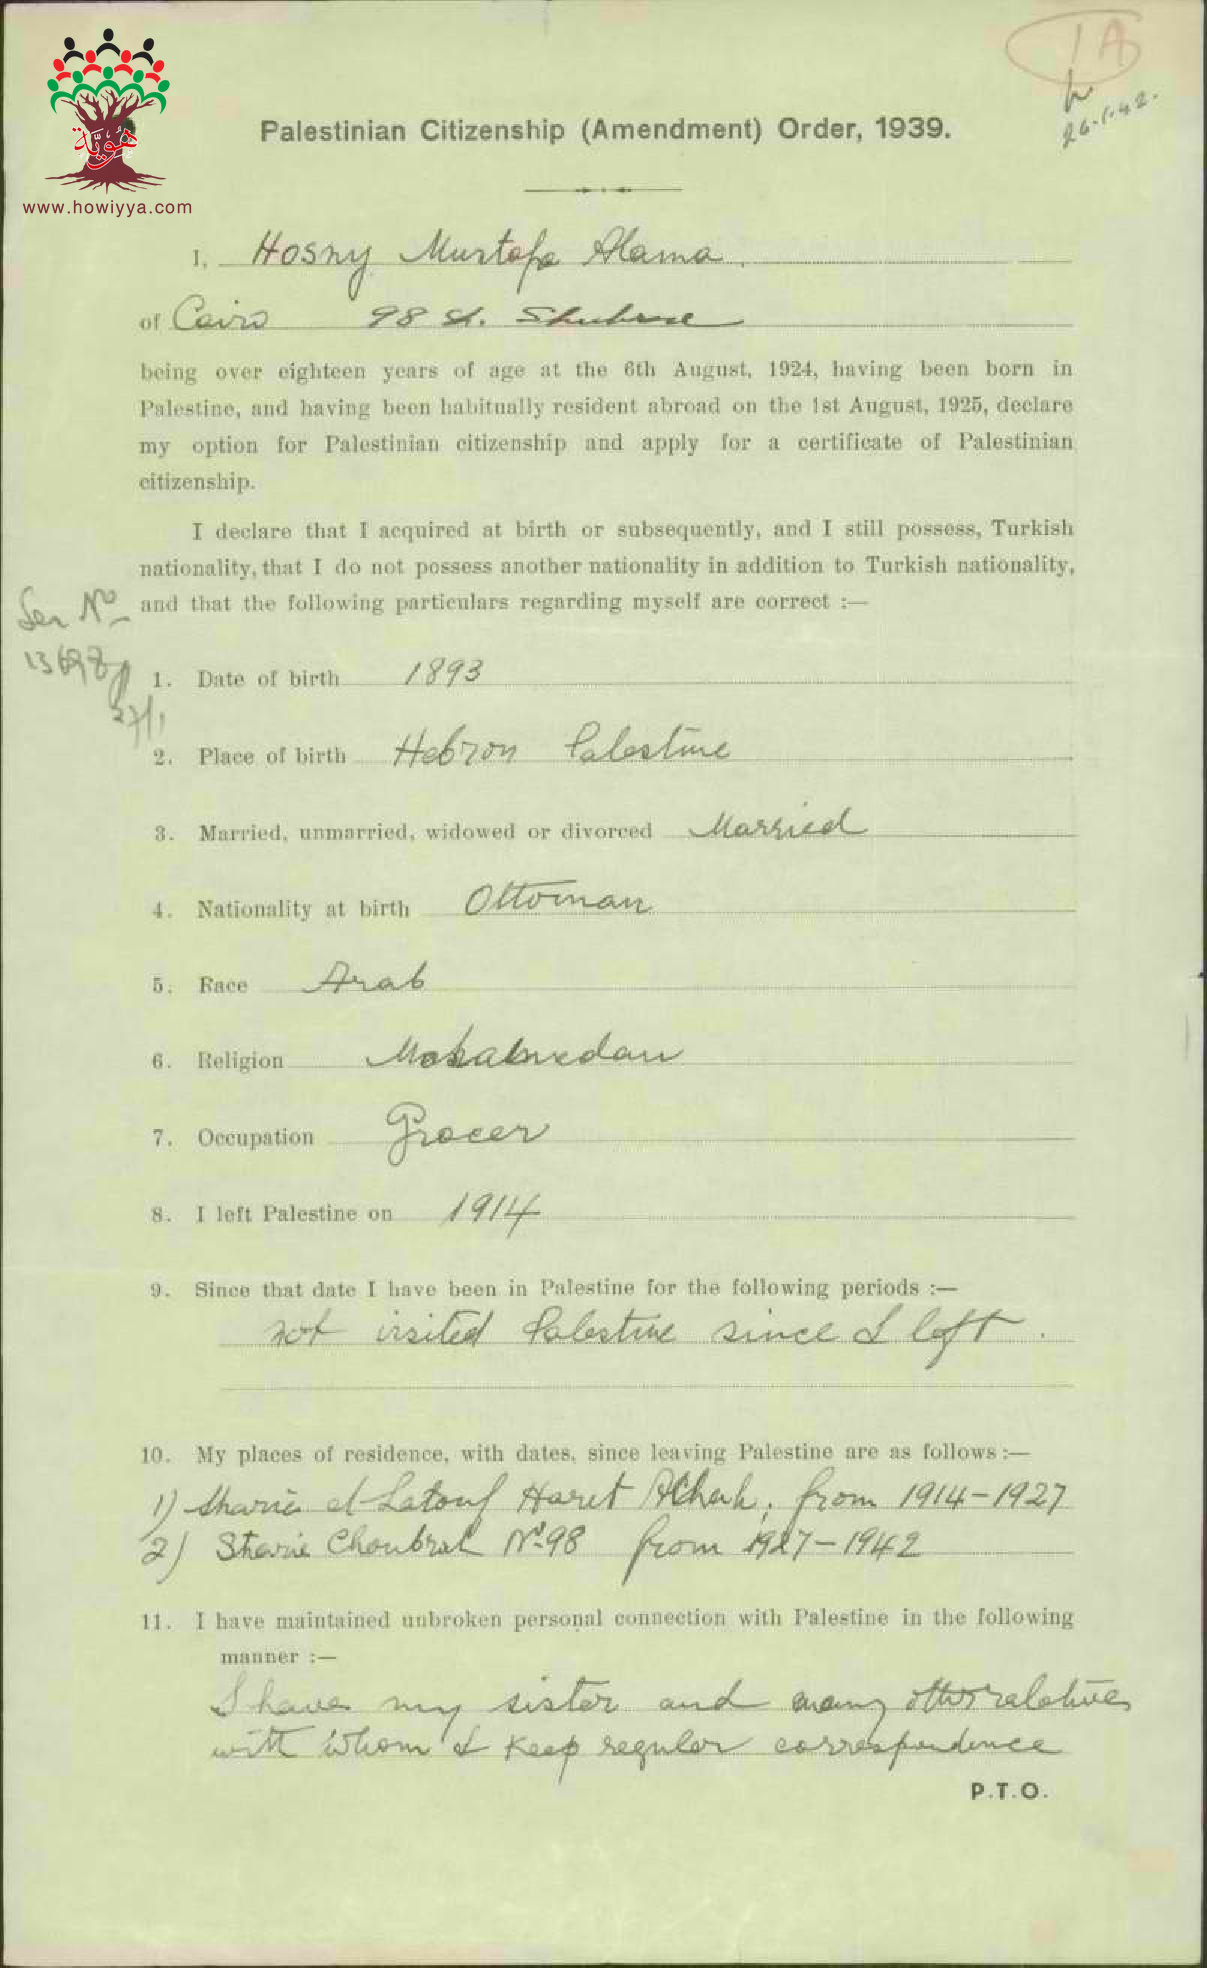 هوية
www.howiyya.com
1A
26.1.42.
Palestinian Citizenship (Amendment) Order, 1939.
I, Hosny Mustafa Alama.
of Cairo 98 St. Shubra
being over eighteen years of age at the 6th August, 1924, having been born in
Palestine, and having been habitually resident abroad on the 1st August, 1925, declare
my option for Palestinian citizenship and apply for a certificate of Palestinian
citizenship.
I declare that I acquired at birth or subsequently, and I still possess, Turkish
nationality, that I do not possess another nationality in addition to Turkish nationality,
and that the following particulars regarding myself are correct :—
Ser No
13698
27/1
1. Date of birth 1893
2. Place of birth Hebron Palestine
3. Married, unmarried, widowed or divorced Married
4. Nationality at birth Ottoman
5. Race Arab
6. Religion Mohamedan
7. Occupation Grocer
8. I left Palestine on 1914
9. Since that date I have been in Palestine for the following periods :—
not visited Palestine since I left.
10. My places of residence, with dates, since leaving Palestine are as follows :—
1) Sharia el-Latouf Haret from 1914-1927
2) Sharie Choubrah No 98 from 1927-1942
11. I have maintained unbroken personal connection with Palestine in the following
manner :—
I have my sister and many other relatives
with whom I keep regular correspondence
P.T.O.